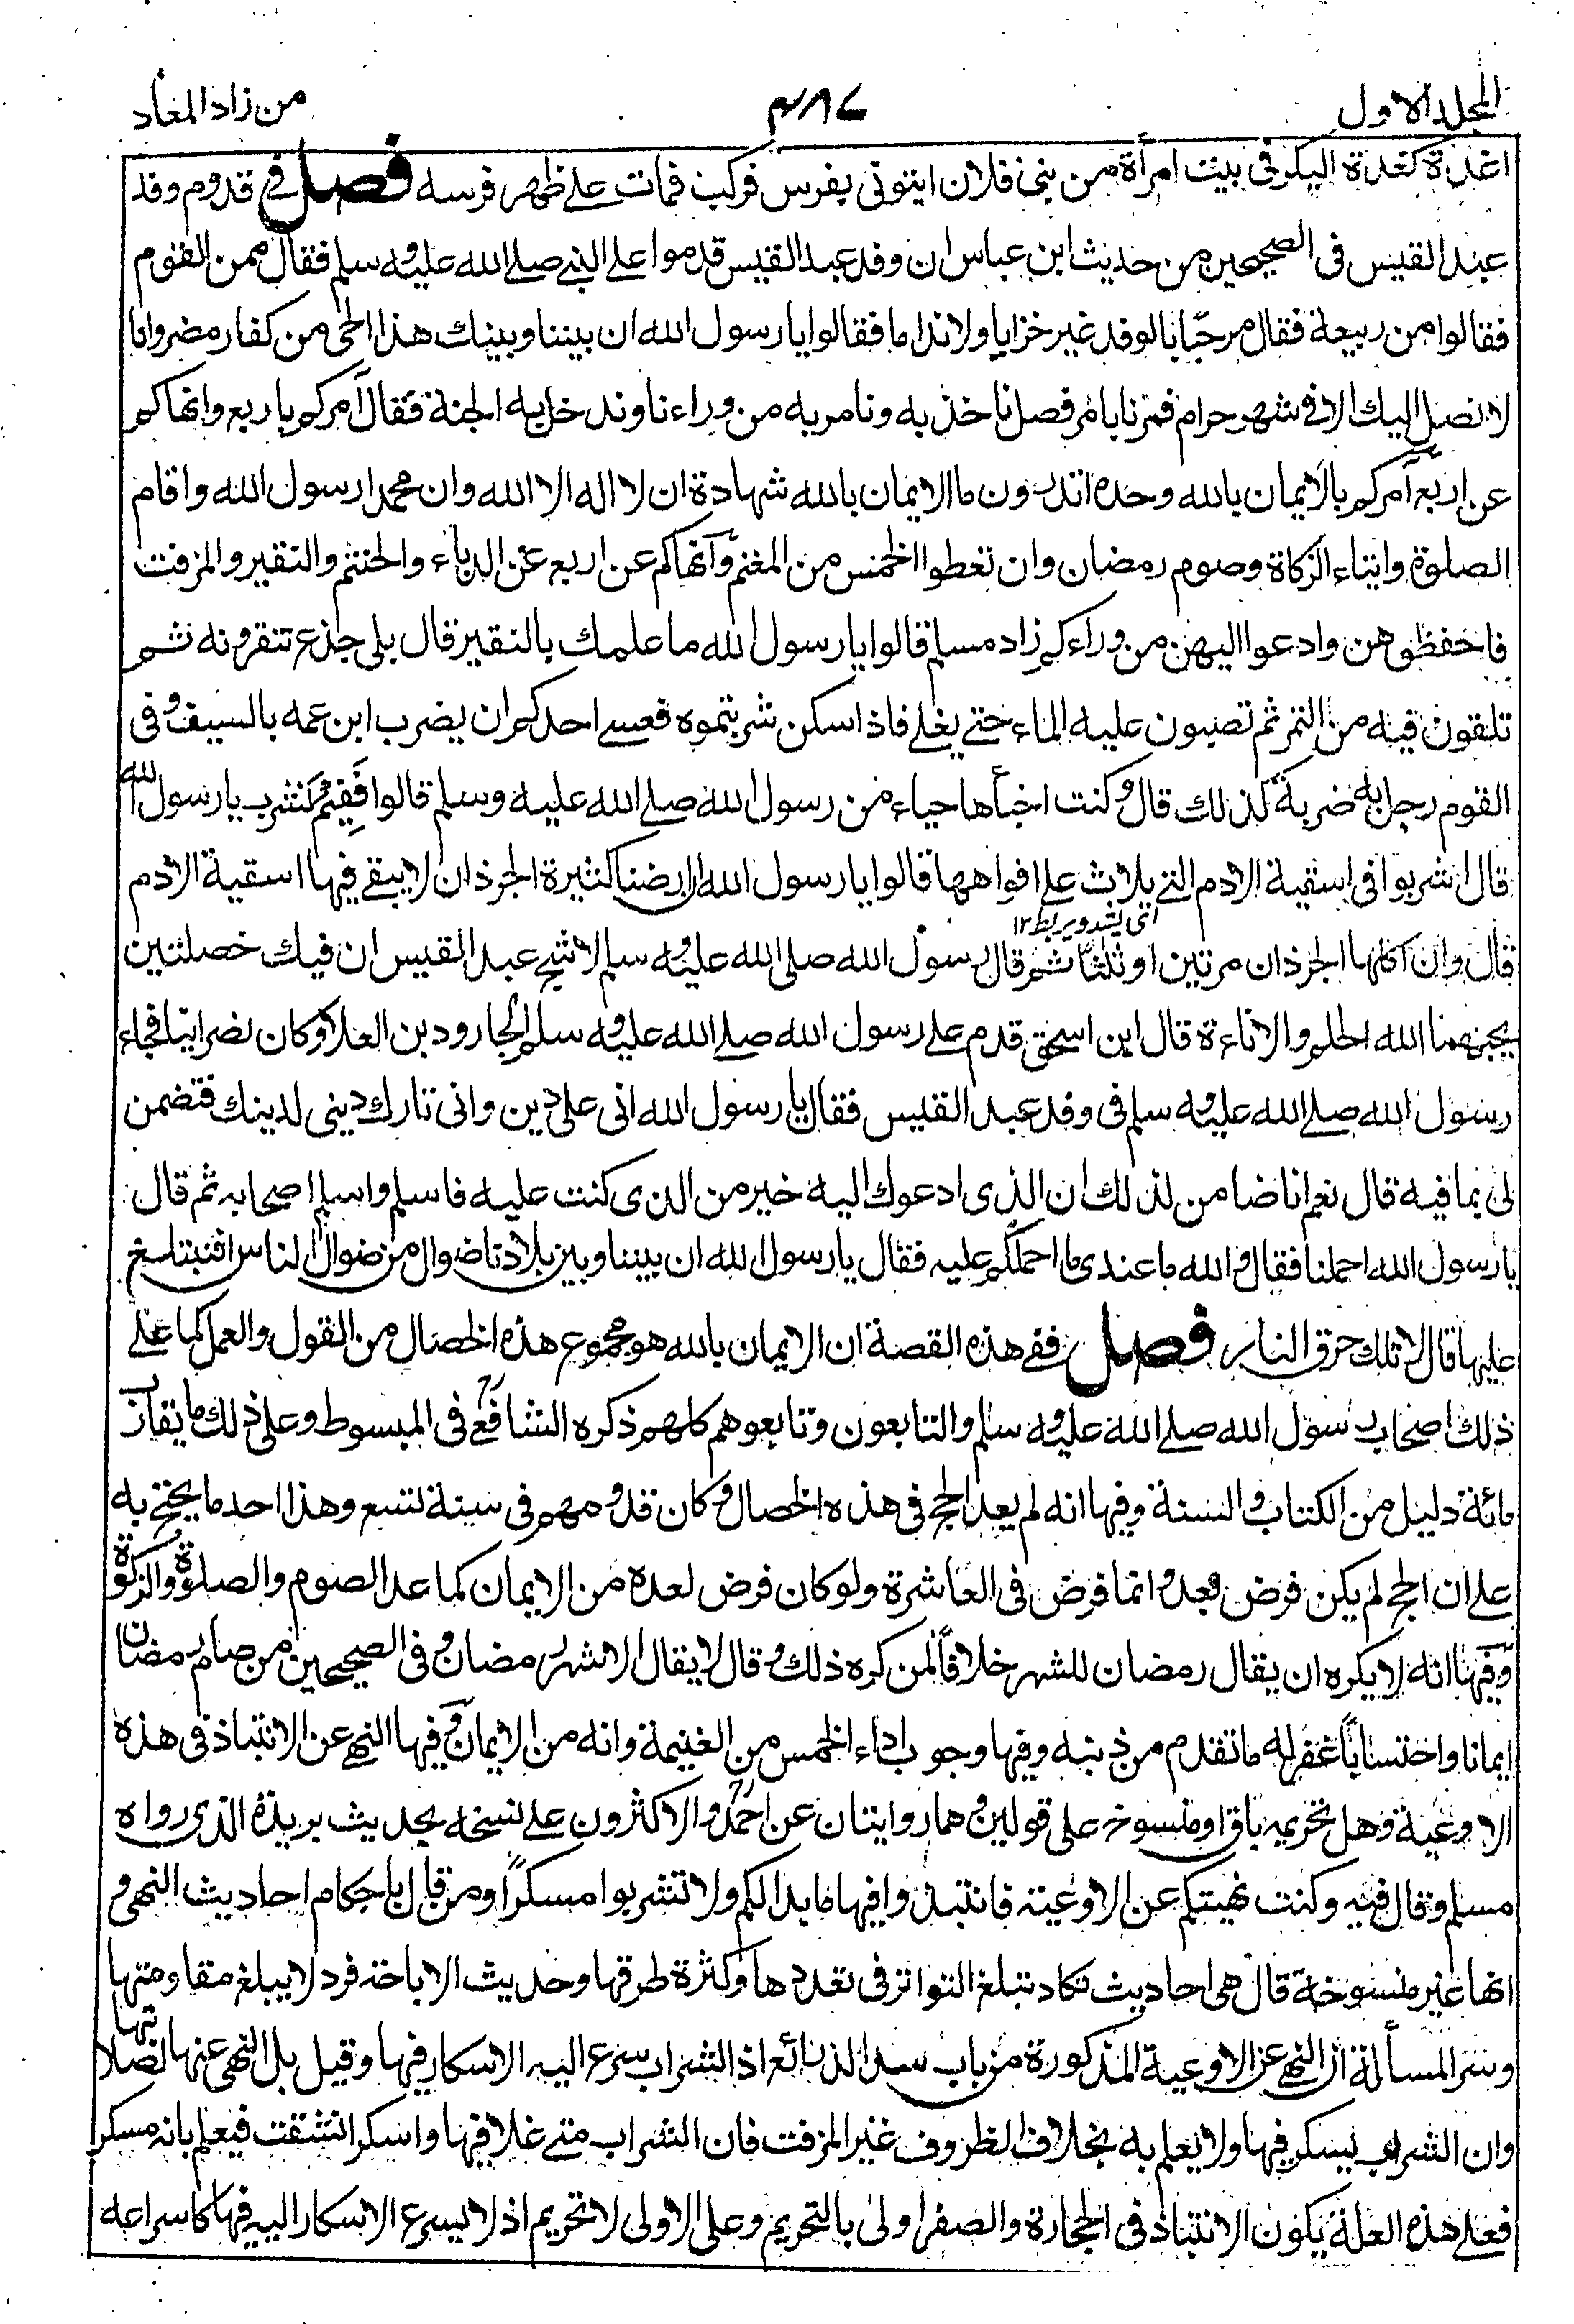 المجلد الاول
٤٨٧
من زاد المعاد
اغدة كغدة البكر فى بيت امرأة من بنى فلان ايتونى بفرس فركب فمات على ظهر فرسه فصل فى قدوم وفد
عبد القيس فى الصحيحين من حديث ابن عباس ان وفد عبد القيس قدموا على النبى صلى الله عليه وسلم فقال ممن القوم
فقالوا من ربيعة فقال مرحبًا بالوفد غير خزايا ولا نداما فقالوا يا رسول الله ان بيننا وبينك هذا الحى من كفار مضر وانا
لا نصل اليك الا فى شهر حرام فمرنا بامر فصل ناخذ به ونامر به من وراءنا وندخل به الجنة فقال آمركم باربع وانهاكم
عن اربع آمركم بالايمان بالله وحده اتدرون ما الايمان بالله شهادة ان لا اله الا الله وان محمدا رسول الله واقام
الصلوة وايتاء الزكاة وصوم رمضان وان تعطوا الخمس من المغنم وآنهاكم عن اربع عن الدباء والحنتم والنقير والمزفت
فاحفظوهن وادعوا اليهن من وراءكم زاد مسلم قالوا يا رسول الله ما علمك بالنقير قال بلى جذع تنقرونه ثم
تلقون فيه من التمر ثم تصبون عليه الماء حتى يغلى فاذا سكن شربتموه فعسى احدكم ان يضرب ابن عمه بالسيف وفى
القوم رجل به ضربة كذلك قال وكنت اخبأها حياء من رسول الله صلى الله عليه وسلم قالوا فَفِيْمَ نشرب يا رسول الله
قال اشربوا فى اسقية الادم التى يلاث على افواهها قالوا يا رسول الله ان ارضنا كثيرة الجرذان لا يبقى فيها اسقية الادم
اى يشد ويربط ١٢
قال وان اكلها الجرذان مرتين او ثلثا ثم قال رسول الله صلى الله عليه وسلم لاشج عبد القيس ان فيك خصلتين
يحبهما الله الحلم والاناءة قال ابن اسحق قدم على رسول الله صلى الله عليه وسلم الجارود بن العلا وكان نصرانيا فجاء
رسول الله صلى الله عليه وسلم فى وفد عبد القيس فقال يا رسول الله انى على دين وانى تارك دينى لدينك فتضمن
لى بما فيه قال نعم انا ضامن لذلك ان الذى ادعوك اليه خير من الذى كنت عليه فاسلم واسلم اصحابه ثم قال
يا رسول الله احملنا فقال والله ما عندى ما احملكم عليه فقال يا رسول الله ان بيننا وبين بلادنا ضوال من ضوال الناس افنتبلغ
عليها قال لا تلك حرق النار فصل ففى هذه القصة ان الايمان بالله هو مجموع هذه الخصال من القول والعمل كما على
ذلك اصحاب رسول الله صلى الله عليه وسلم والتابعون وتابعوهم كلهم ذكره الشافعى رح فى المبسوط وعلى ذلك ما يقارب
مائة دليل من الكتاب والسنة وفيها انه لم يعد الحج فى هذه الخصال وكان قدومهم فى سنة تسع وهذا احد ما يحتج به
على ان الحج لم يكن فرض بعد وانما فرض فى العاشرة ولو كان فرض لعده من الايمان كما عد الصوم والصلوة والزكوة
وفيها انه لا يكره ان يقال رمضان للشهر خلافًا لمن كره ذلك وقال لا يقال الا شهر رمضان وفى الصحيحين من صام رمضان
ايمانا واحتسابًا غفر له ما تقدم من ذنبه وفيها وجوب اداء الخمس من الغنيمة وانه من الايمان وفيها النهى عن الانتباذ فى هذه
الاوعية وهل تحريمه باق او منسوخ على قولين وهما روايتان عن احمد رح والاكثرون على نسخه بحديث بريدة الذى رواه
مسلم وقال فيه وكنت نهيتكم عن الاوعية فانتبذوا فيها ما بدا لكم ولا تشربوا مسكرًا ومن قال باحكام احاديث النهى و
انها غير منسوخة قال هى احاديث تكاد تبلغ التواتر فى تعددها وكثرة طرقها وحديث الاباحة فرد لا يبلغ مقاومتها
وسر المسألة ان النهى عن الاوعية المذكورة من باب سد الذرائع اذ الشراب يسرع اليه الاسكار فيها وقيل بل النهى عنها لصلابتها
وان الشراب يسكر فيها ولا يعلم به بخلاف الظروف غير المزفت فان الشراب متى غلا فيها واسكر انشقت فيعلم بانه مسكر
فعلى هذه العلة يكون الانتباذ فى الحجارة والصفر اولى بالتحريم وعلى الاولى لا تحريم اذ لا يسرع الاسكار اليه فيها كاسراعه